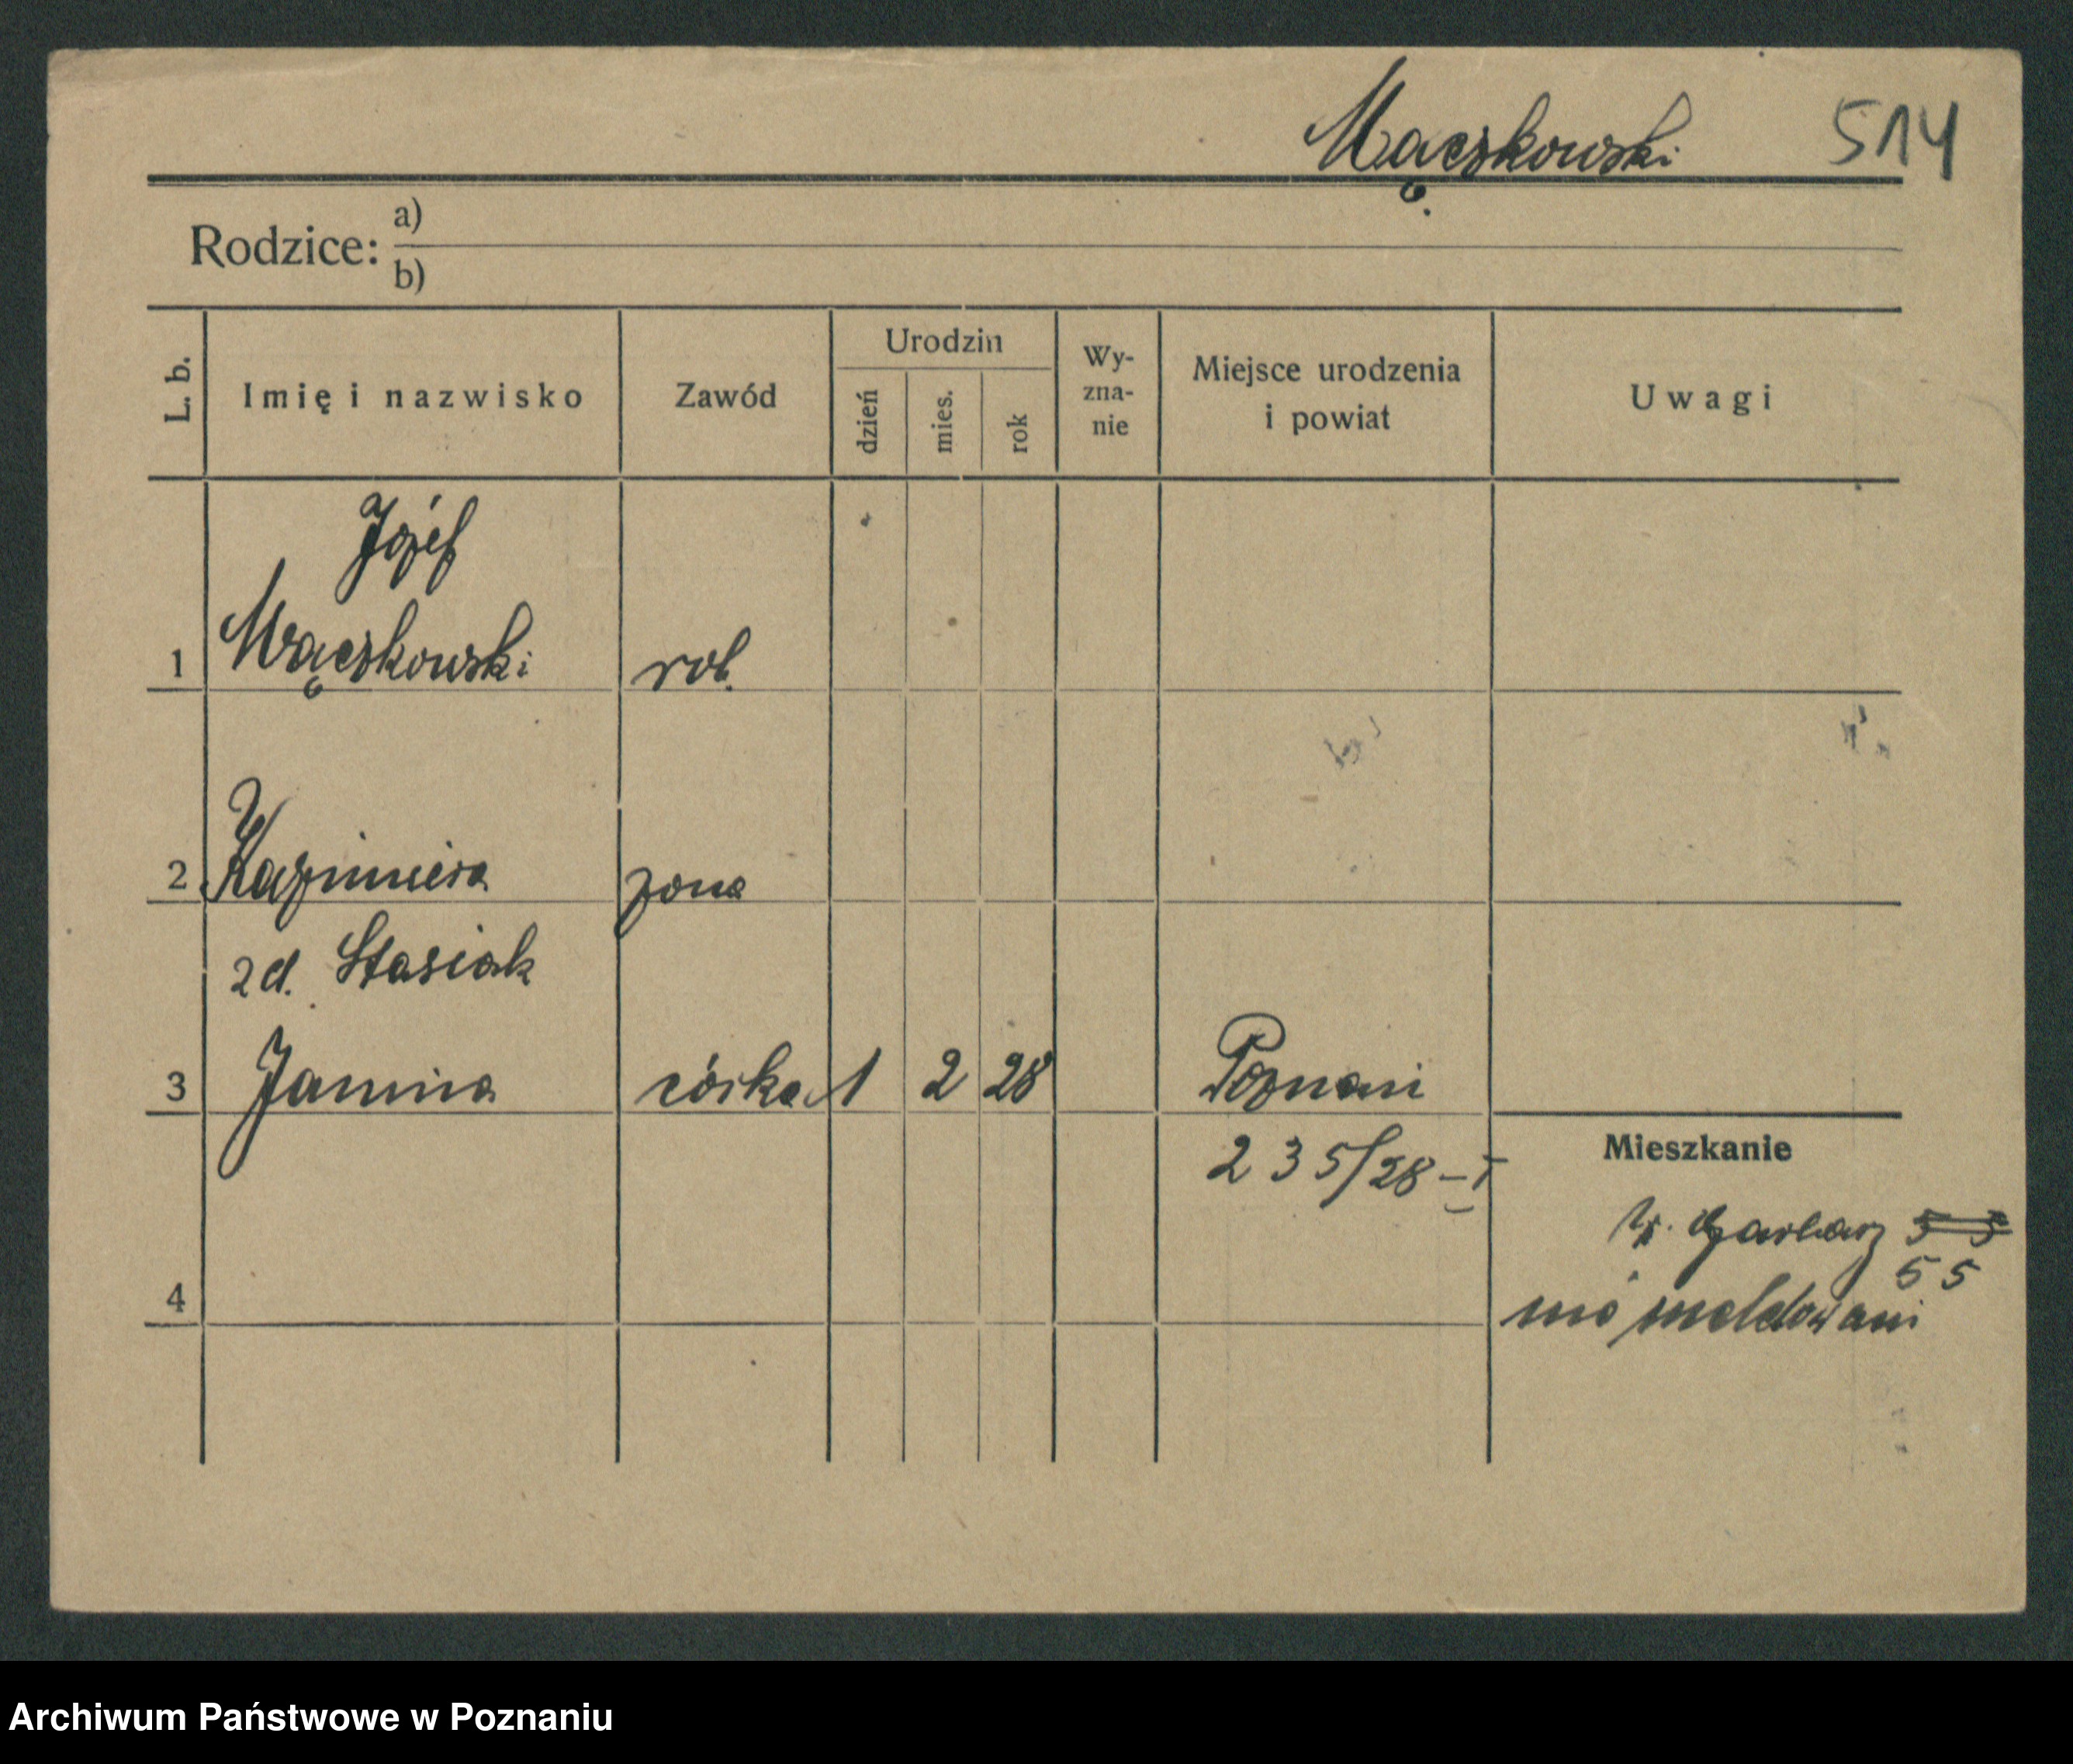 Mączkowski 514
Rodzice: a)
b)
L. b. Imię i nazwisko Zawód Urodzin dzień mies. rok Wy-zna-nie Miejsce urodzenia i powiat Uwagi
Józef
1 Mączkowski rob.
2 Kazimiera żona
zd. Stasiak
3 Janina córka 1 2 28 Poznań
235/28-I
Mieszkanie
Garbary 55
55
4
nie meldowani
Archiwum Państwowe w Poznaniu